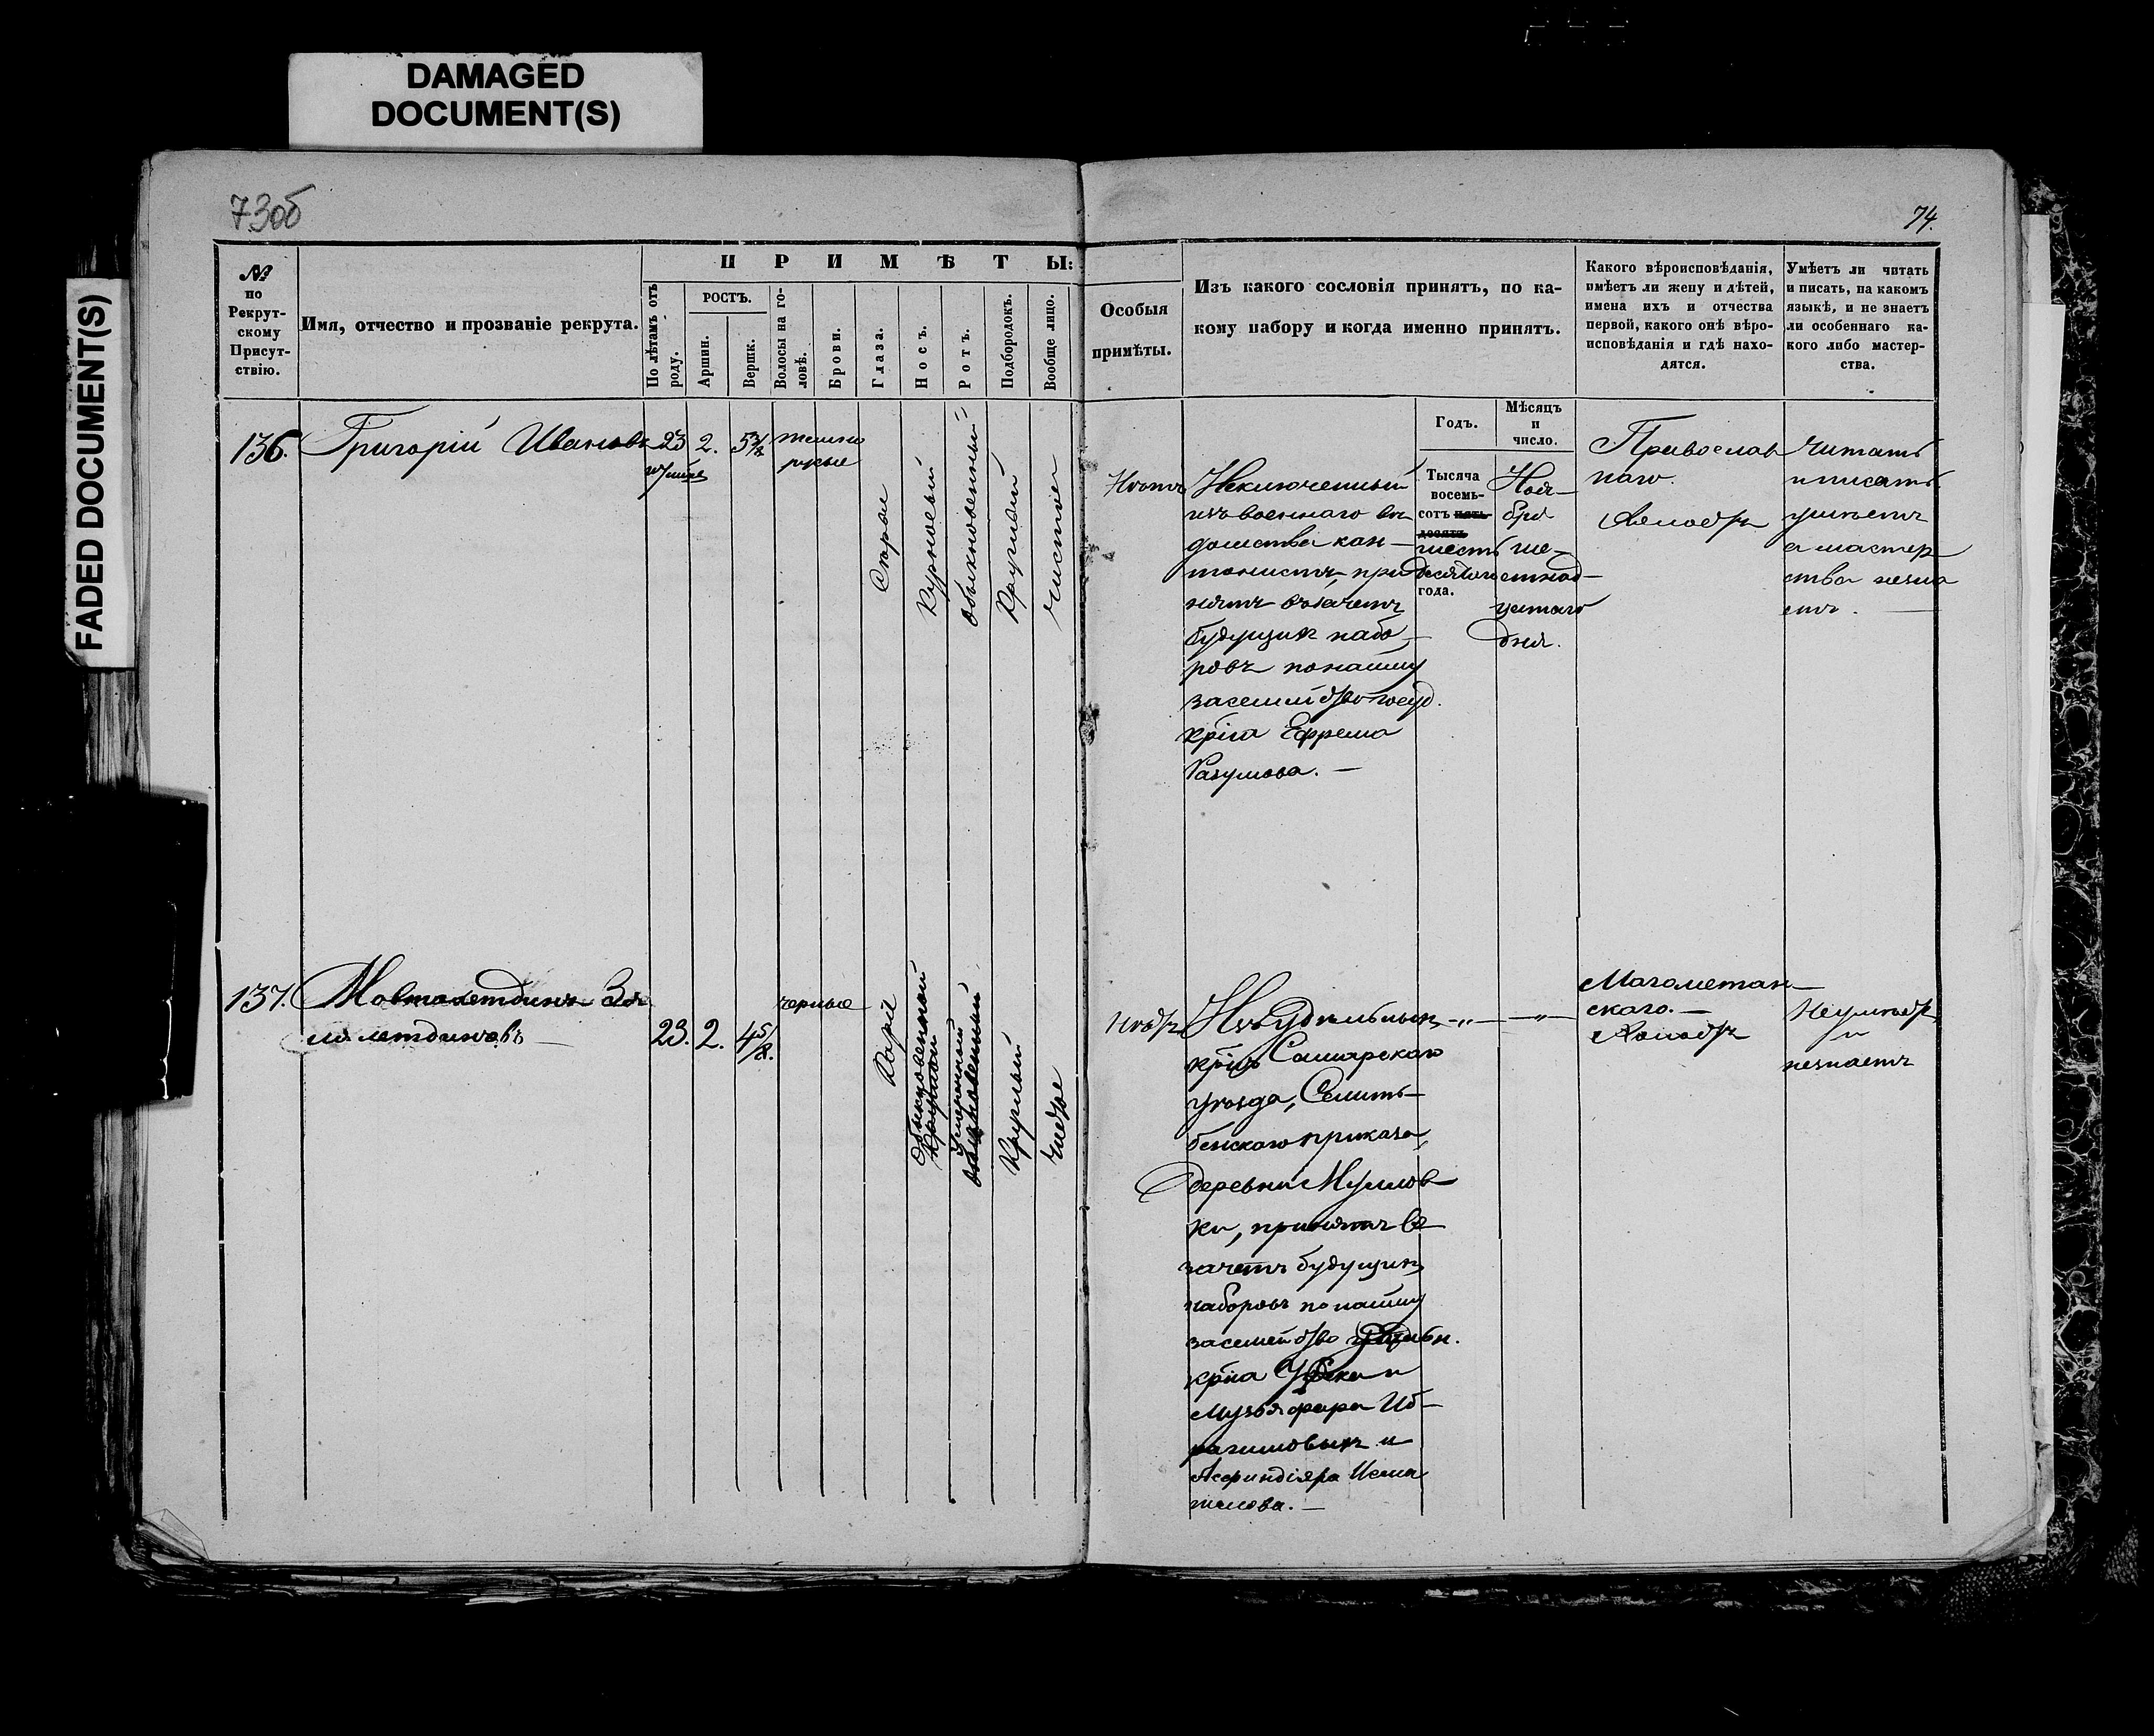 DAMAGED
DOCUMENT(S)
FADED DOCUMENT(S)
73об
74.
№
по
Рекрут-
скому
Присут-
ствію.
Имя, отчество и прозваніе рекрута.
ПРИМѢТЫ:
По лѣтамъ отъ
роду.
РОСТЪ.
Аршин.
Вершк.
Волосы на го-
ловѣ.
Брови.
Глаза.
Носъ.
Ротъ.
Подбородокъ.
Вообще лицо.
Особыя
примѣты.
Изъ какого сословія принятъ, по ка-
кому набору и когда именно принятъ.
Какого вѣроисповѣданія,
имѣетъ ли жену и дѣтей,
имена ихъ и отчества
первой, какого онѣ вѣро-
исповѣданія и гдѣ нахо-
дятся.
Умѣетъ ли читать
и писать, на какомъ
языкѣ, и не знаетъ
ли особеннаго ка-
кого либо мастер-
ства.
Годъ.
Мѣсяцъ
и
число.
136. Григорій Ивановъ 23 2. 5
темно
русые
сѣрыя
Курносый
обыкновенный
Круглый
чистое
Нѣтъ
Исключенный
изъ военнаго вѣ-
домства кан-
тонистъ, при
нятъ въ зачетъ
будущихъ набо-
ровъ по найму
за семейство госуд.
кр-на Ефрема
Разумова. —
Тысяча
восемь-
сотъ пять-
десятъ
шесть
десятаго
года.
Ноя-
бря
ше-
стнад-
цатаго
дня.
Православ
наго.
Холостъ
Читать
и писать
умѣетъ
а мастер
ства незна
етъ. —
137.
летдиновъ —
23. 2. 4 5/8.
черные
Карiе
обыкновенный
умеренный
Круглый
чистое
нѣтъ
Изъ удѣльныхъ — „ — — „ —
кр-нъ Самарскаго
уѣзда,
бенскаго приказа,
деревни Муллов
ки, принятъ въ
зачетъ будущихъ
наборовъ по найму
за семейство
кр-на
Музяфара Иб-
рагимовыхъ и
Асфиндіяра Исма
гилова. —
Магометан-
скаго. —
Холостъ
Неумѣетъ
и
незнаетъ